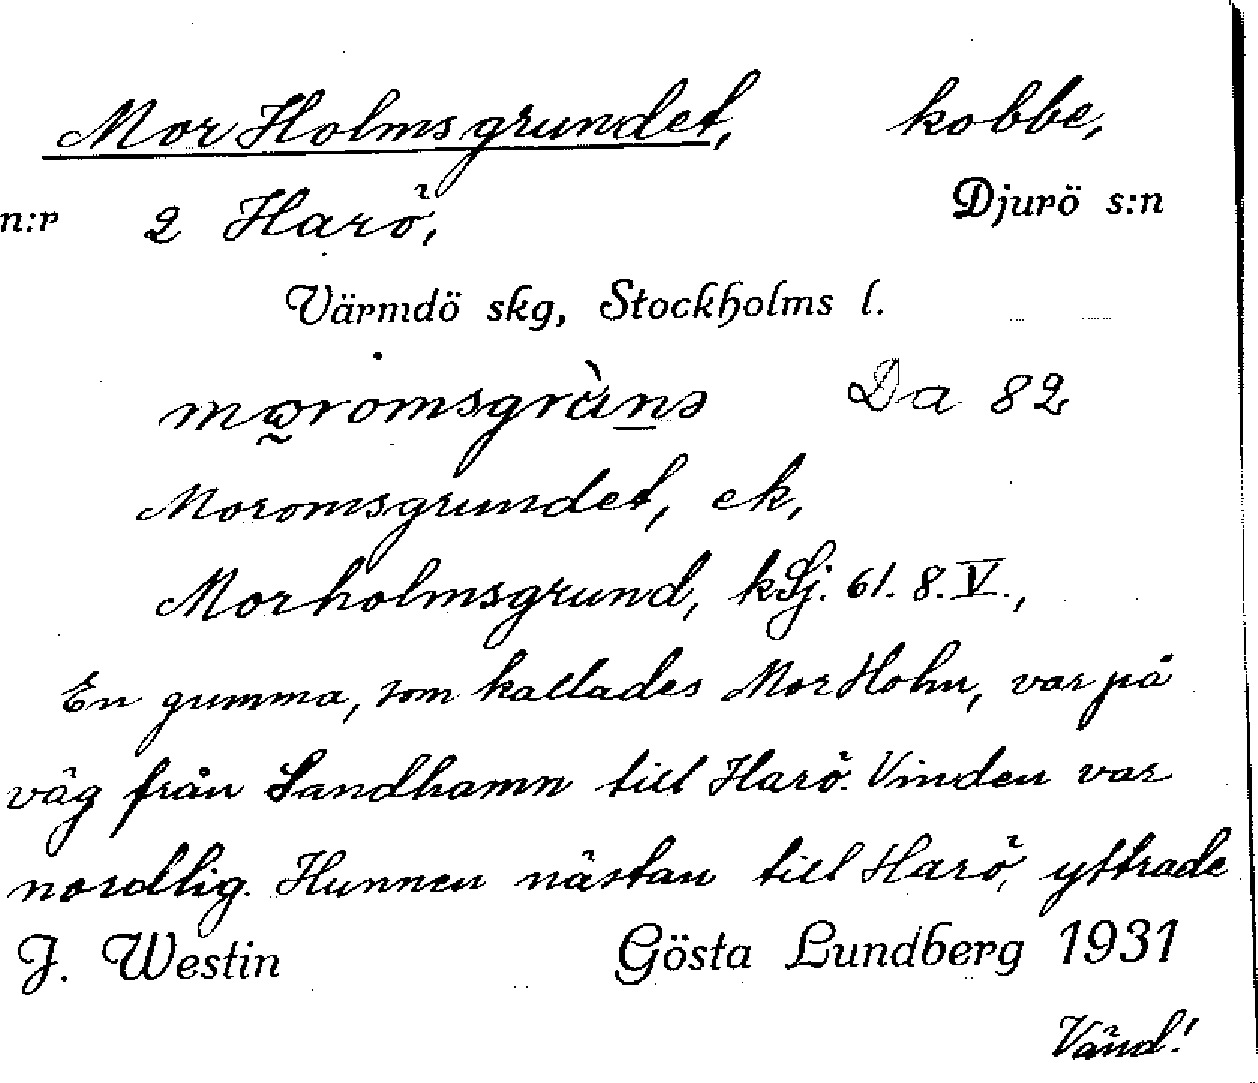 Mor Holmsgrundet, kobbe,
n:r 2 Harö, Djurö s:n
Värmdö skg, Stockholms l.
Da 82
Moromsgrundet, ek,
Morholmsgrund, kSj. 61. 8. V.,
En gumma, som kallades Mor Holm, var på
väg från Sandhamn till Harö. Vinden var
nordlig. Hunnen nästan till Harö, yttrade
J. Westin Gösta Lundberg 1931
Vänd!